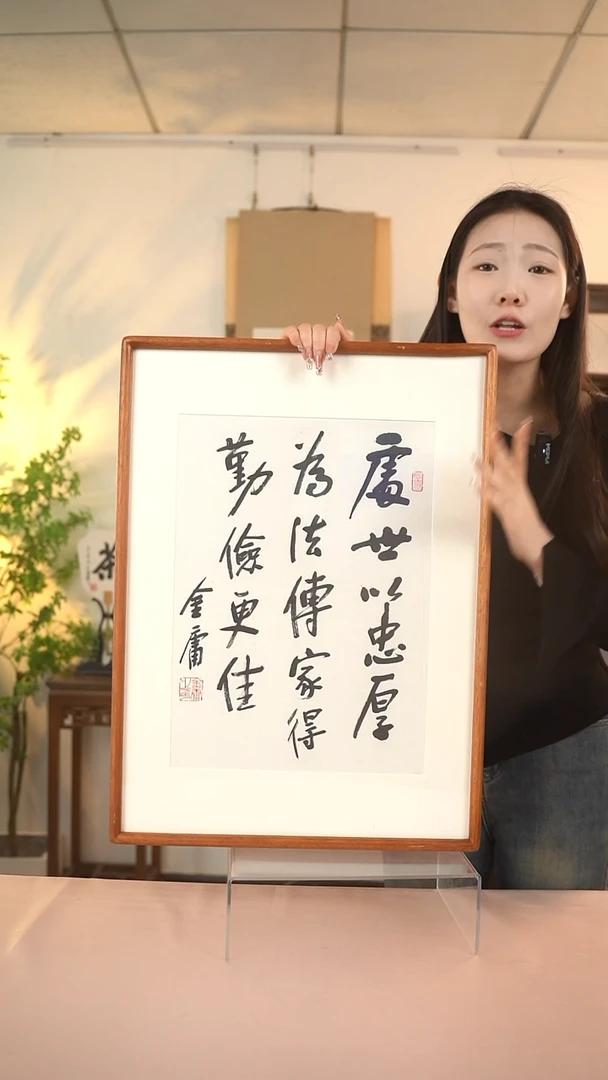 處世以忠厚
為法傳家得
勤儉更佳
金庸
茶